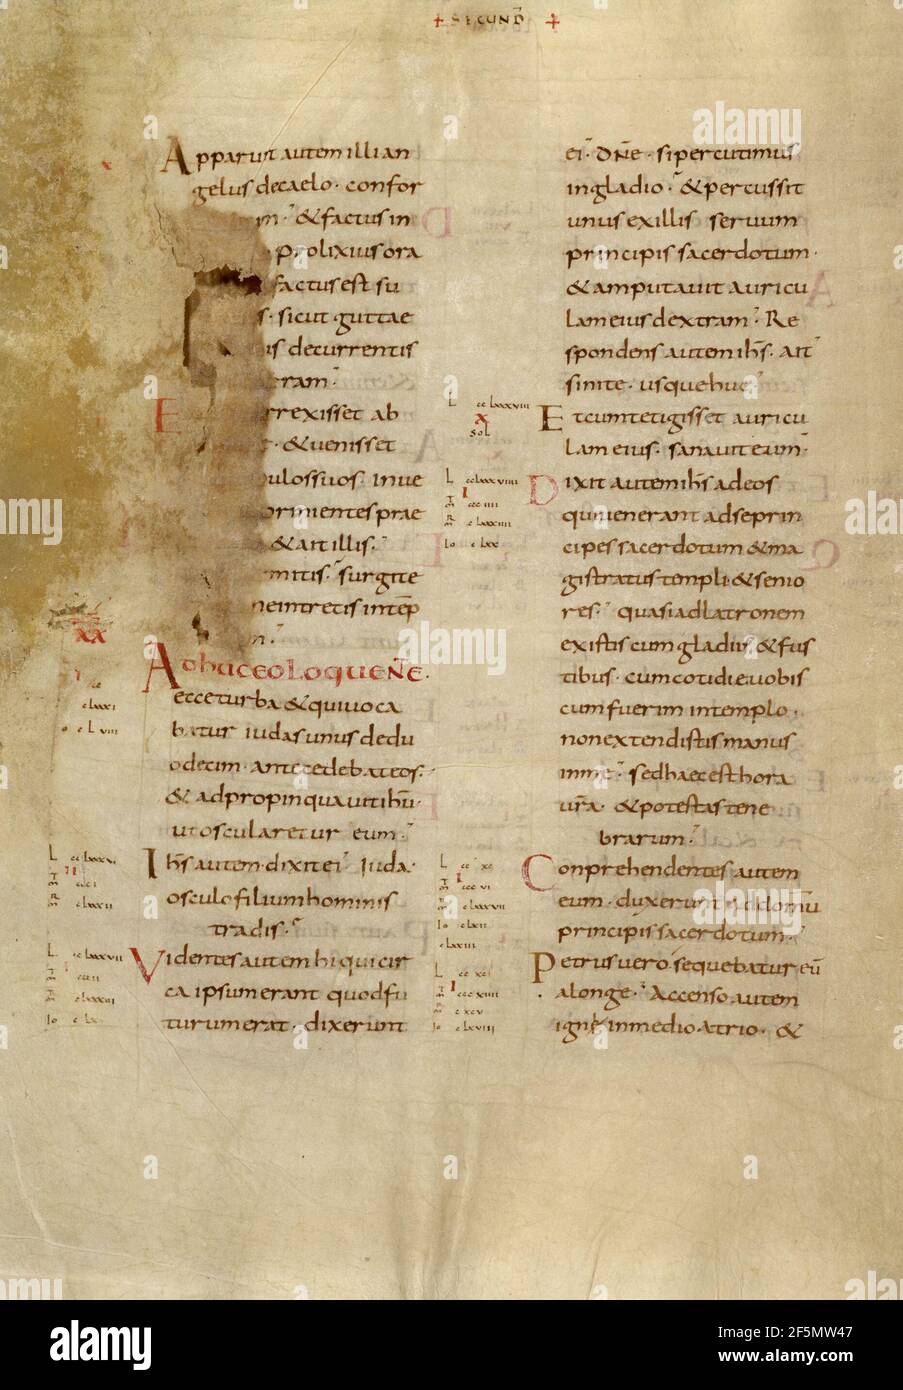 + SECUND +
Apparuit autem illi an
gelus de caelo · confor
m · & factus in
prolixius ora
factus est su
s · sicut guttae
is decurrentis
ram ·
E rrexisset ab
· & uenisset
ulos suos · Inue
ormientes prae
& ait illis ·
mitis · surgite
ne intretis in temp
n ·
xx
Adhuc eo loquente ·
ecce turba & qui uoca
batur iudas unus de du
odecim · antecedebat eos ·
& adpropinquauit ihu ·
ut oscularetur eum ·
L cclxxxvi
Ihs autem · dixit ei · Iuda ·
osculo filium hominis
tradis ·
L cclxxxvii
Videntes autem hi qui cir
ca ipsum erant quod fu
turum erat · dixerunt
ei · Dne · si percutimus
in gladio · & percussit
unus ex illis seruum
principis sacerdotum ·
& amputauit auricu
lam eius dextram · Re
spondens autem ihs · ait
sinite · usque huc ·
L cclxxxviii
x
sol
Et cum tetigisset auricu
lam eius · sanauit eum ·
L cclxxxviiii
Dixit autem ihs ad eos
qui uenerant ad se prin
cipes sacerdotum & ma
gistratus templi & senio
res · quasi ad latronem
existis cum gladiis & fus
tibus · cum cotidie uobis
cum fuerim in templo ·
non extendistis manus
in me · sed haec est hora
ura · & potestas tene
brarum ·
L ccxc
Conprehendentes autem
eum · duxerunt ad domu
principis sacerdotum ·
L ccxci
Petrus uero sequebatur eu
a longe · Accenso autem
igne in medio atrio · &
alamy
Image ID: 2F5MW47
www.alamy.com